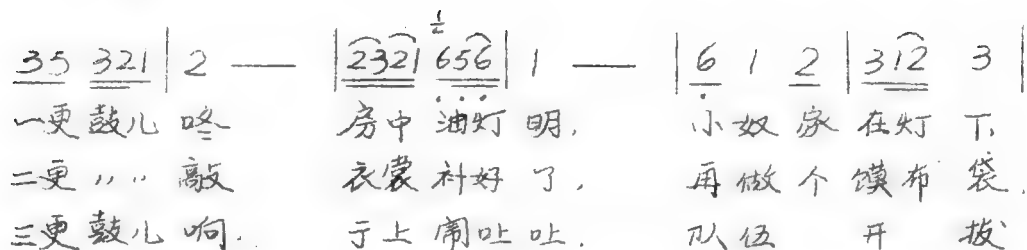 1/2
35 321 | 2 — | 2321 656 | 1 — | 6 1 2 | 312 3 |
一更鼓儿咚 房中油灯明, 小奴家在灯下,
二更〃〃敲 衣裳补好了, 再做个馍布袋,
三更鼓儿响. 于上闹吐吐. 队伍开拔